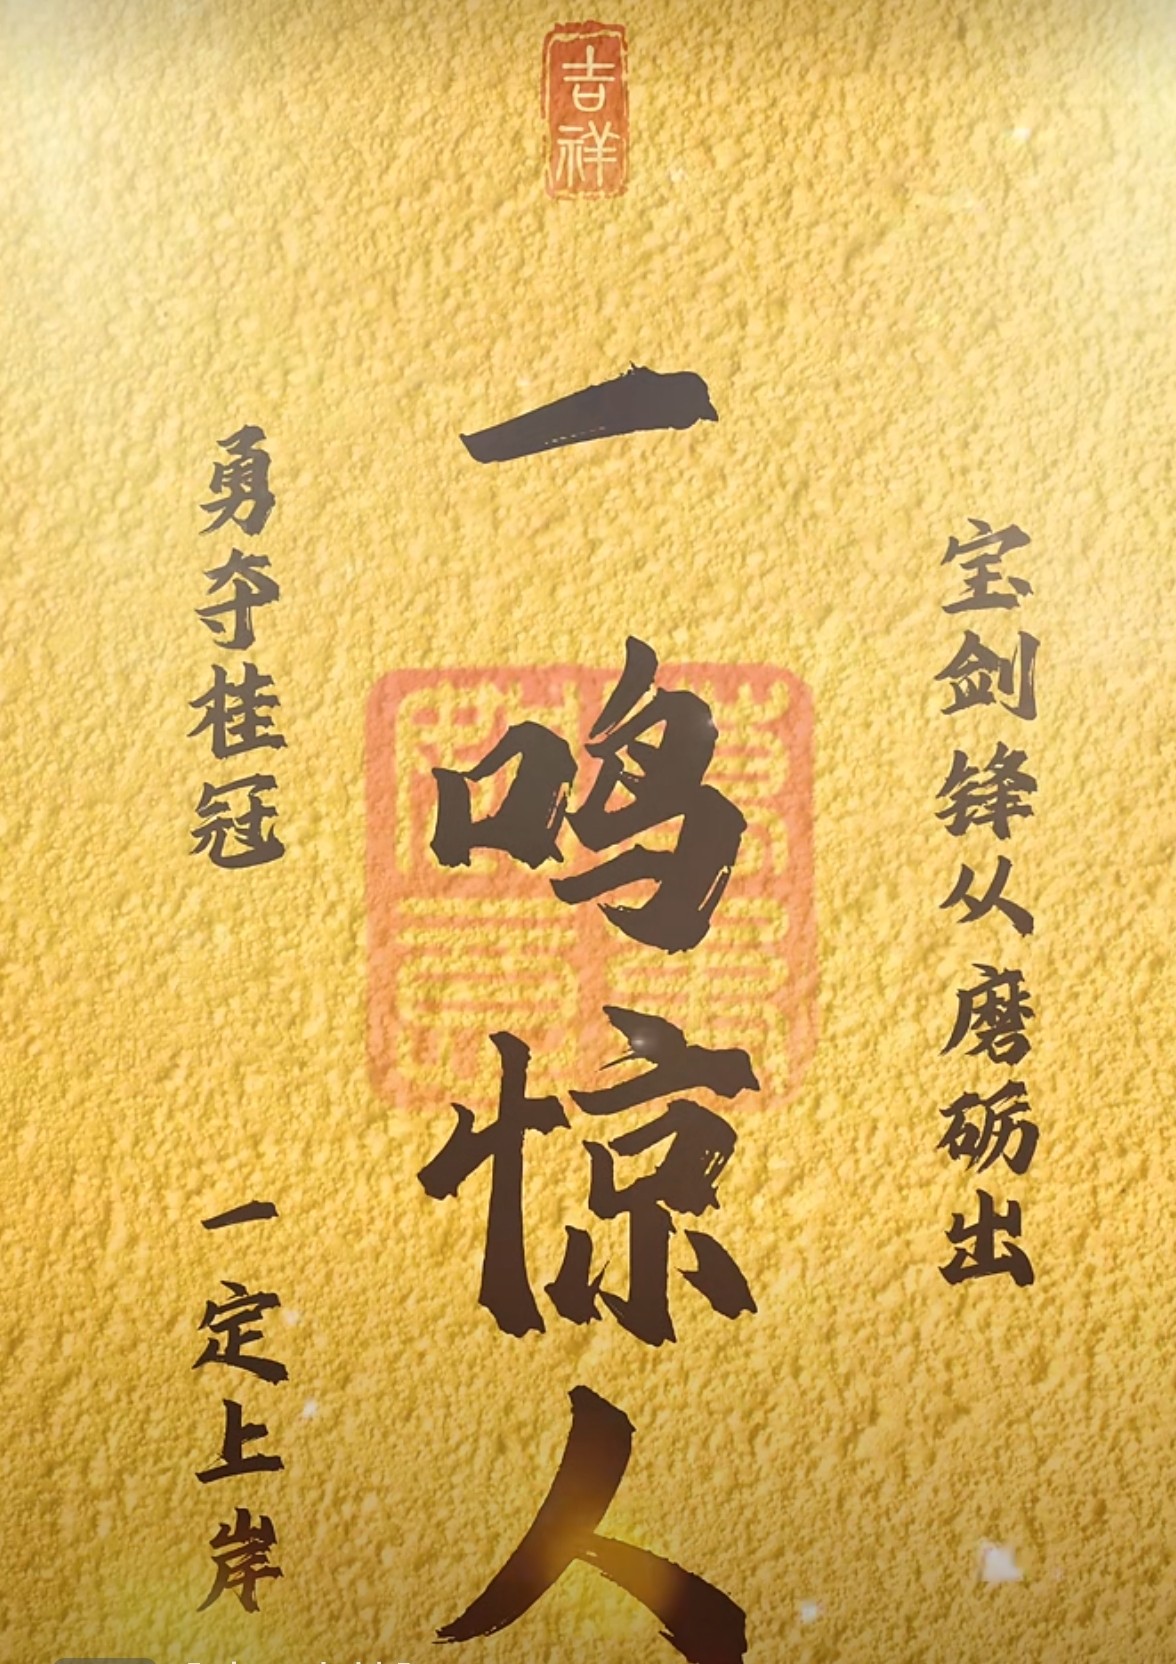 吉祥
宝剑锋从磨砺出
一鸣惊人
勇夺桂冠
一定上岸